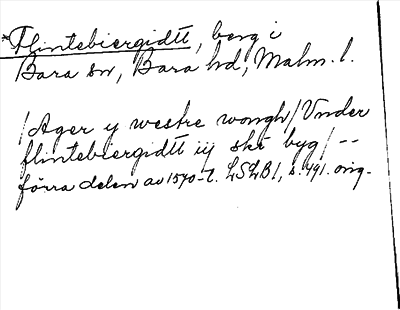 *Flintebiergidtt, berg i
Bara sn, Bara hd, Malm. l.
/Ager y westre wongh/Vnder
flintebiergidtt iij ske byg/--
förra delen av 1570-t. LSLB1, s. 491. orig.